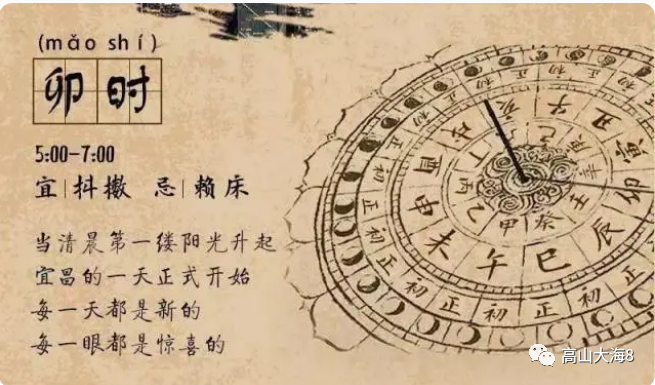 (mǎo shí)
卯时
5:00-7:00
宜|抖擞 忌|赖床
当清晨第一缕阳光升起
宜昌的一天正式开始
每一天都是新的
每一眼都是惊喜的
亥 子 丑 寅 卯 辰 巳 午 未 申 酉 戌
甲 乙 丙 丁 己 庚 辛 壬 癸
初 正 初 正 初 正 初 正
高山大海8